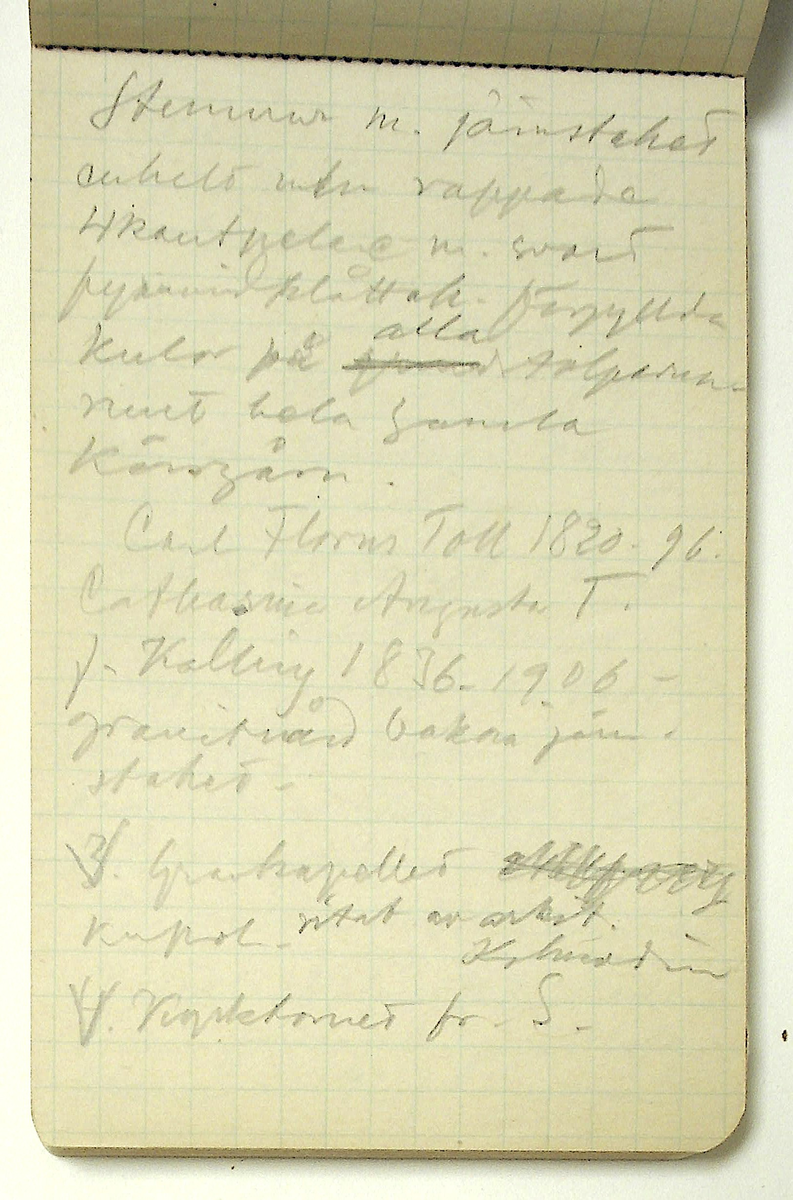 Stenmur m. järnstaket
enkelt mln rappade
4kantpelare m. svart
pyramidplåttak. Förgyllda
kulor på alla stolparna
runt hela gamla
Körsgårn.
Carl Florus Toll 1820-96.
Catharina Augusta T.
f. Kalling 1836-1906 -
granitvård bakom järn-
staket -
3. Gravkapellet
kupol - ritat av arkit.
4. Kyrktornet fr. S.